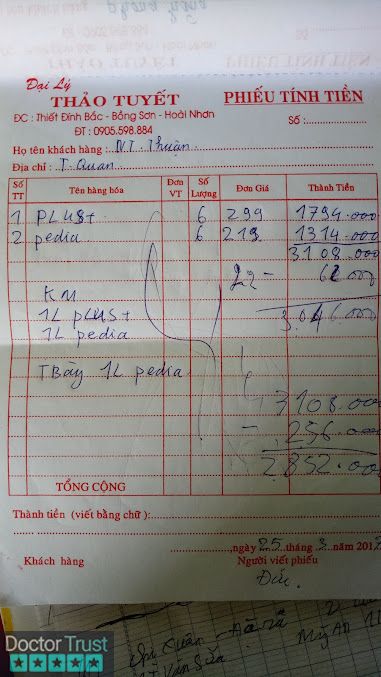 Đại Lý
THẢO TUYẾT
PHIẾU TÍNH TIỀN
ĐC : Thiết Đính Bắc - Bồng Sơn - Hoài Nhơn
ĐT : 0905.598.884
Số :
Họ tên khách hàng : NT. Thuận
Địa chỉ : T. Quan
Số TT Tên hàng hóa Đơn VT Số Lượng Đơn Giá Thành Tiền
1 PLUS+ 6 299 1794.000
2 pedia 6 219 1314.000
3108.000
2%- 62.000
KM 3.046.000
1L PLUS+
1L pedia
TBày 1L pedia
3108.000
- 256.000
2852.000
TỔNG CỘNG
Thành tiền (viết bằng chữ) :
,ngày 25 tháng 3 năm 2017
Khách hàng Người viết phiếu
Đức
Doctor Trust
Mỹ An